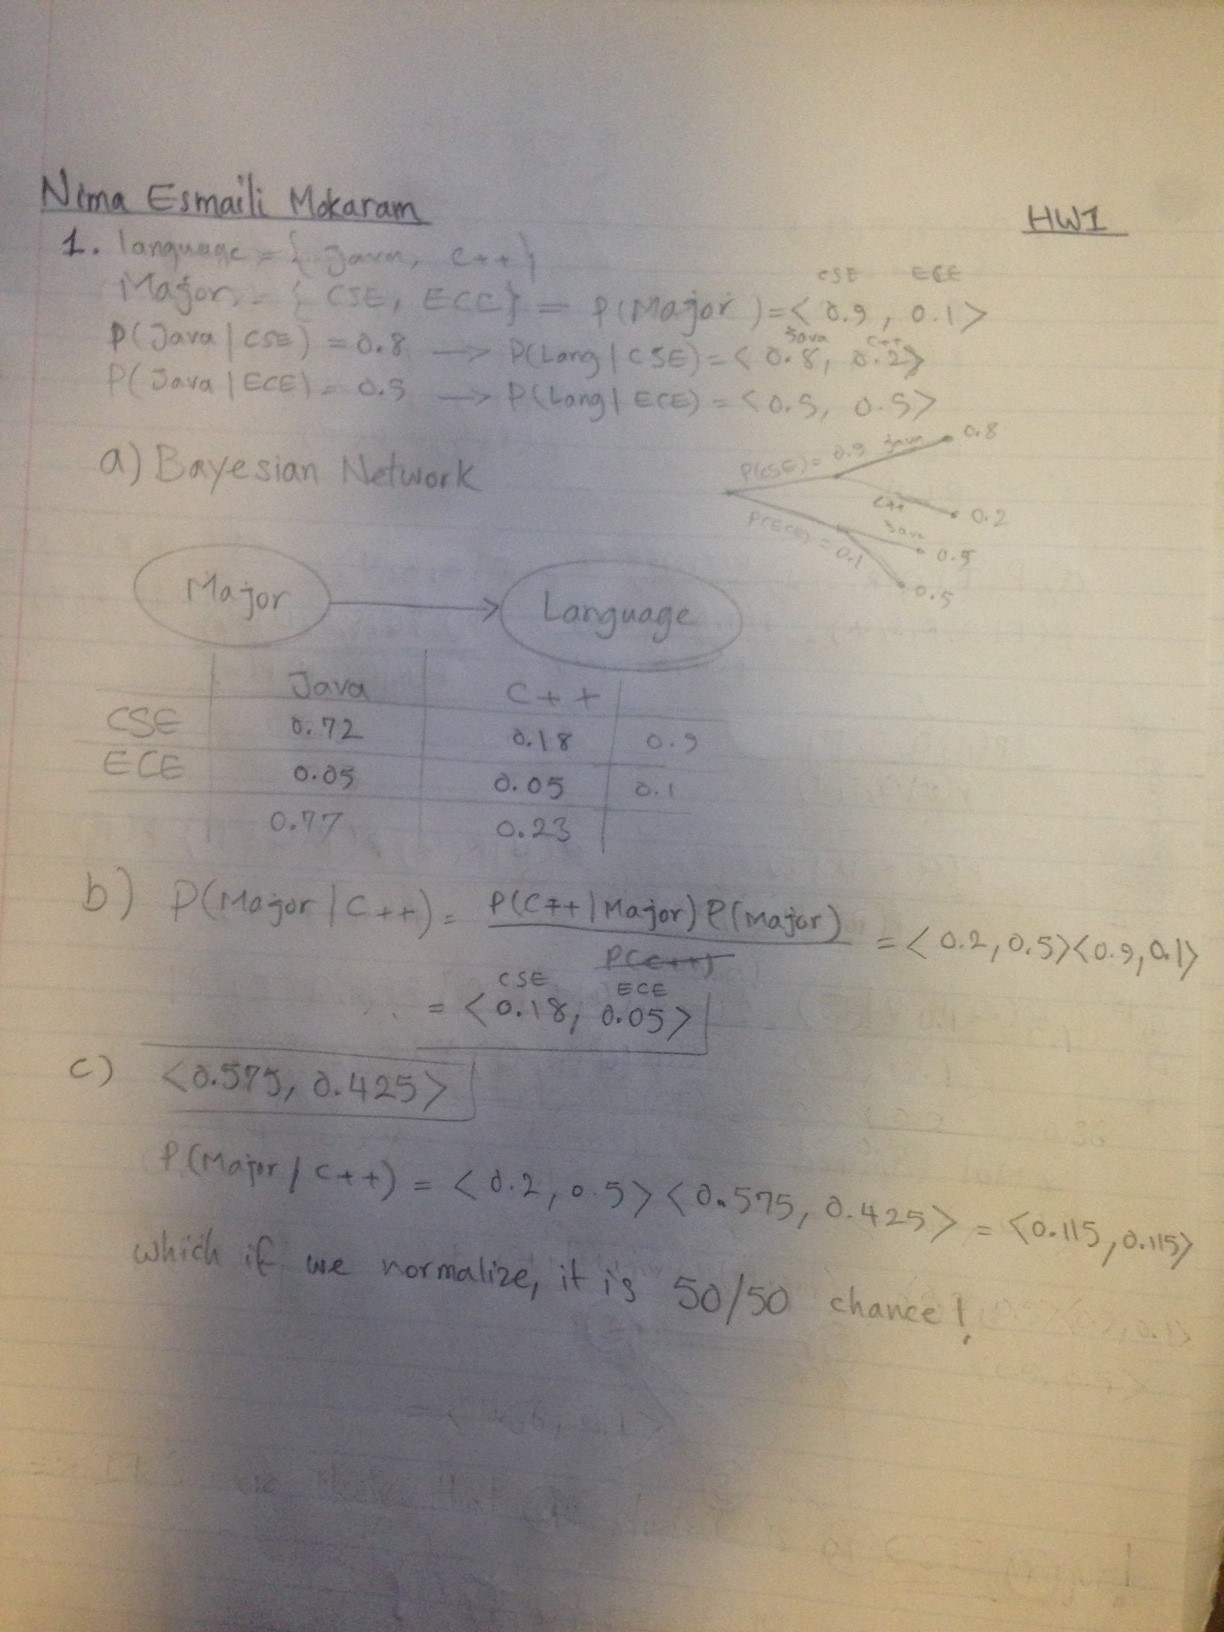 Nima Esmaili Mokaram
HW1
1. language = { Java, C++ }
CSE ECE
Major = { CSE, ECE } = P(Major) = < 0.9, 0.1 >
Java C++
P(Java | CSE) = 0.8 → P(Lang | CSE) = < 0.8, 0.2 >
P(Java | ECE) = 0.5 → P(Lang | ECE) = < 0.5, 0.5 >
a) Bayesian Network
P(CSE) = 0.9 Java 0.8
C++ 0.2
P(ECE) = 0.1 Java 0.5
0.5
Major → Language
Java C++
CSE 0.72 0.18 0.9
ECE 0.05 0.05 0.1
0.77 0.23
b) P(Major | C++) = P(C++ | Major) P(Major) = < 0.2, 0.5 > < 0.9, 0.1 >
P(C++)
CSE ECE
= < 0.18, 0.05 >
c) < 0.575, 0.425 >
P(Major / C++) = < 0.2, 0.5 > < 0.575, 0.425 > = < 0.115, 0.115 >
which if we normalize, it is 50/50 chance!